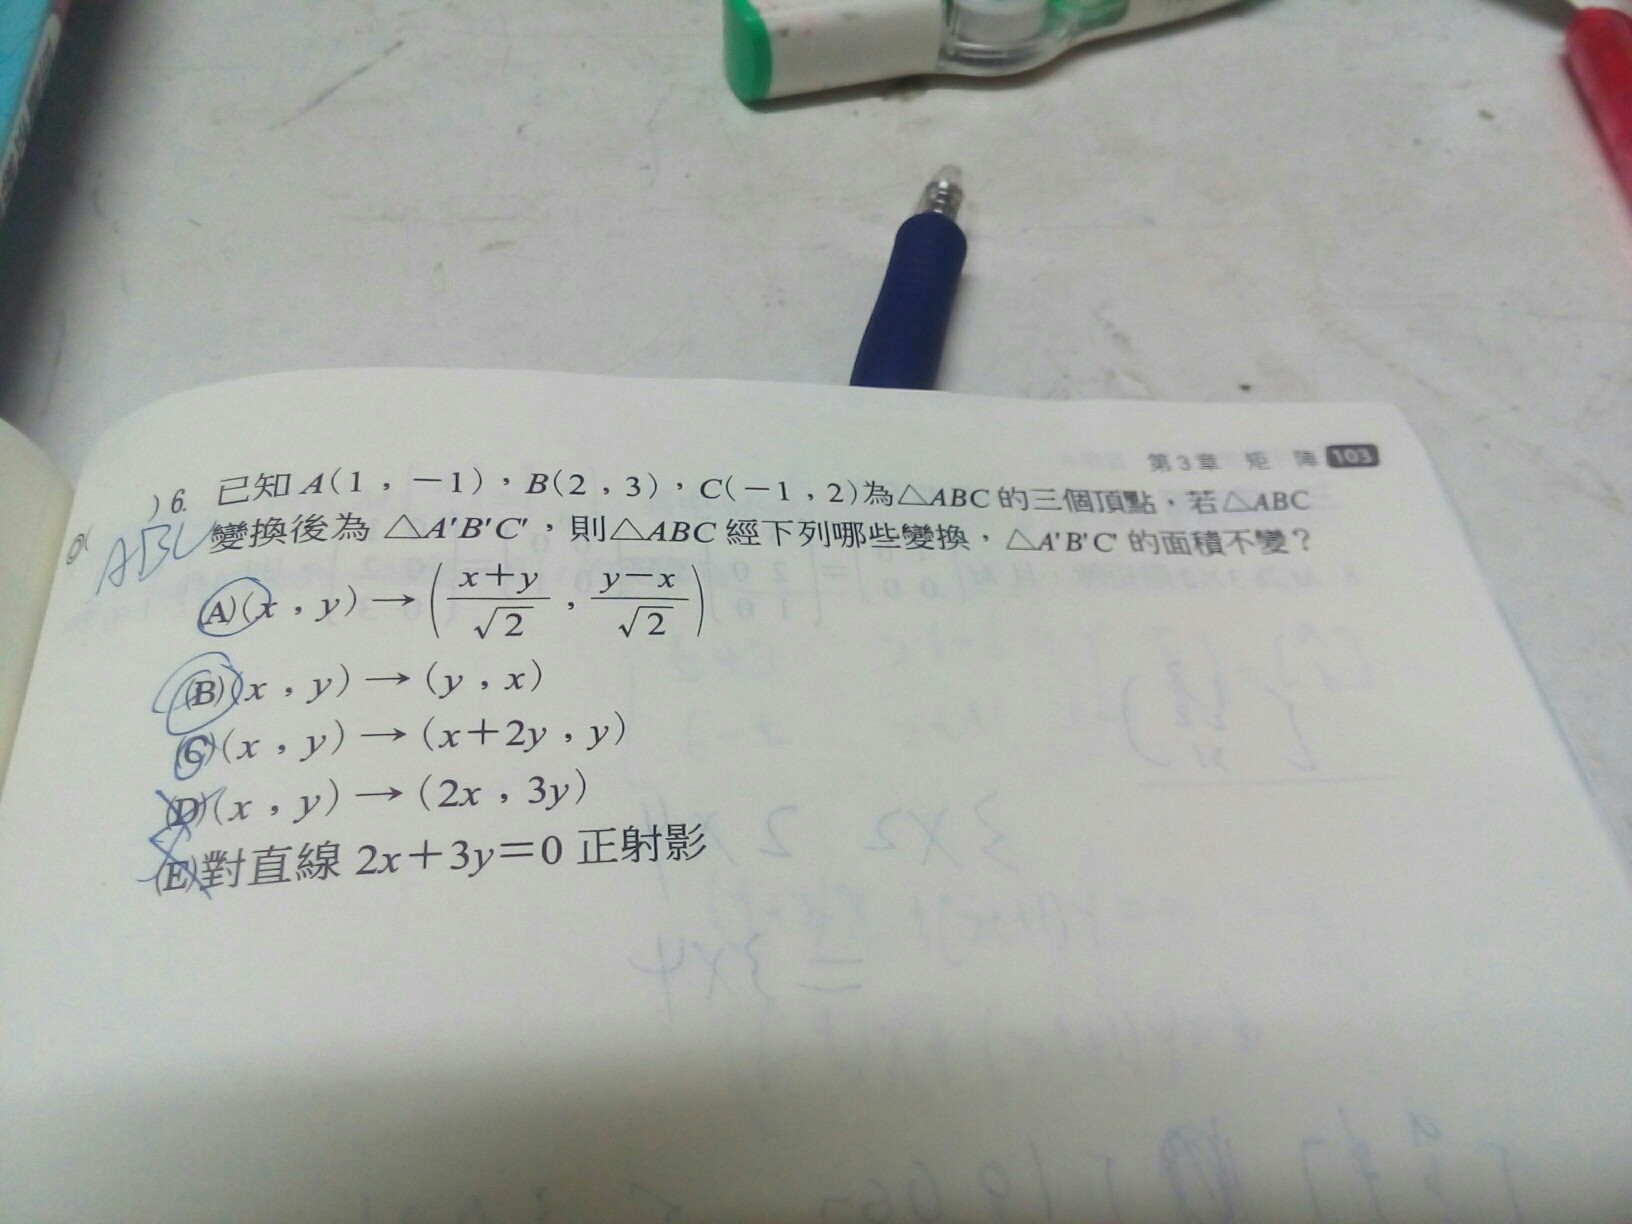 第3章 矩 陣 103
)6. 已知 A(1,-1),B(2,3),C(-1,2)為△ABC的三個頂點,若△ABC
ABC 變換後為 △A'B'C',則△ABC 經下列哪些變換,△A'B'C' 的面積不變?
(A)(x,y)→((x+y)/√2,(y-x)/√2)
(B)(x,y)→(y,x)
(C)(x,y)→(x+2y,y)
(D)(x,y)→(2x,3y)
(E)對直線 2x+3y=0 正射影